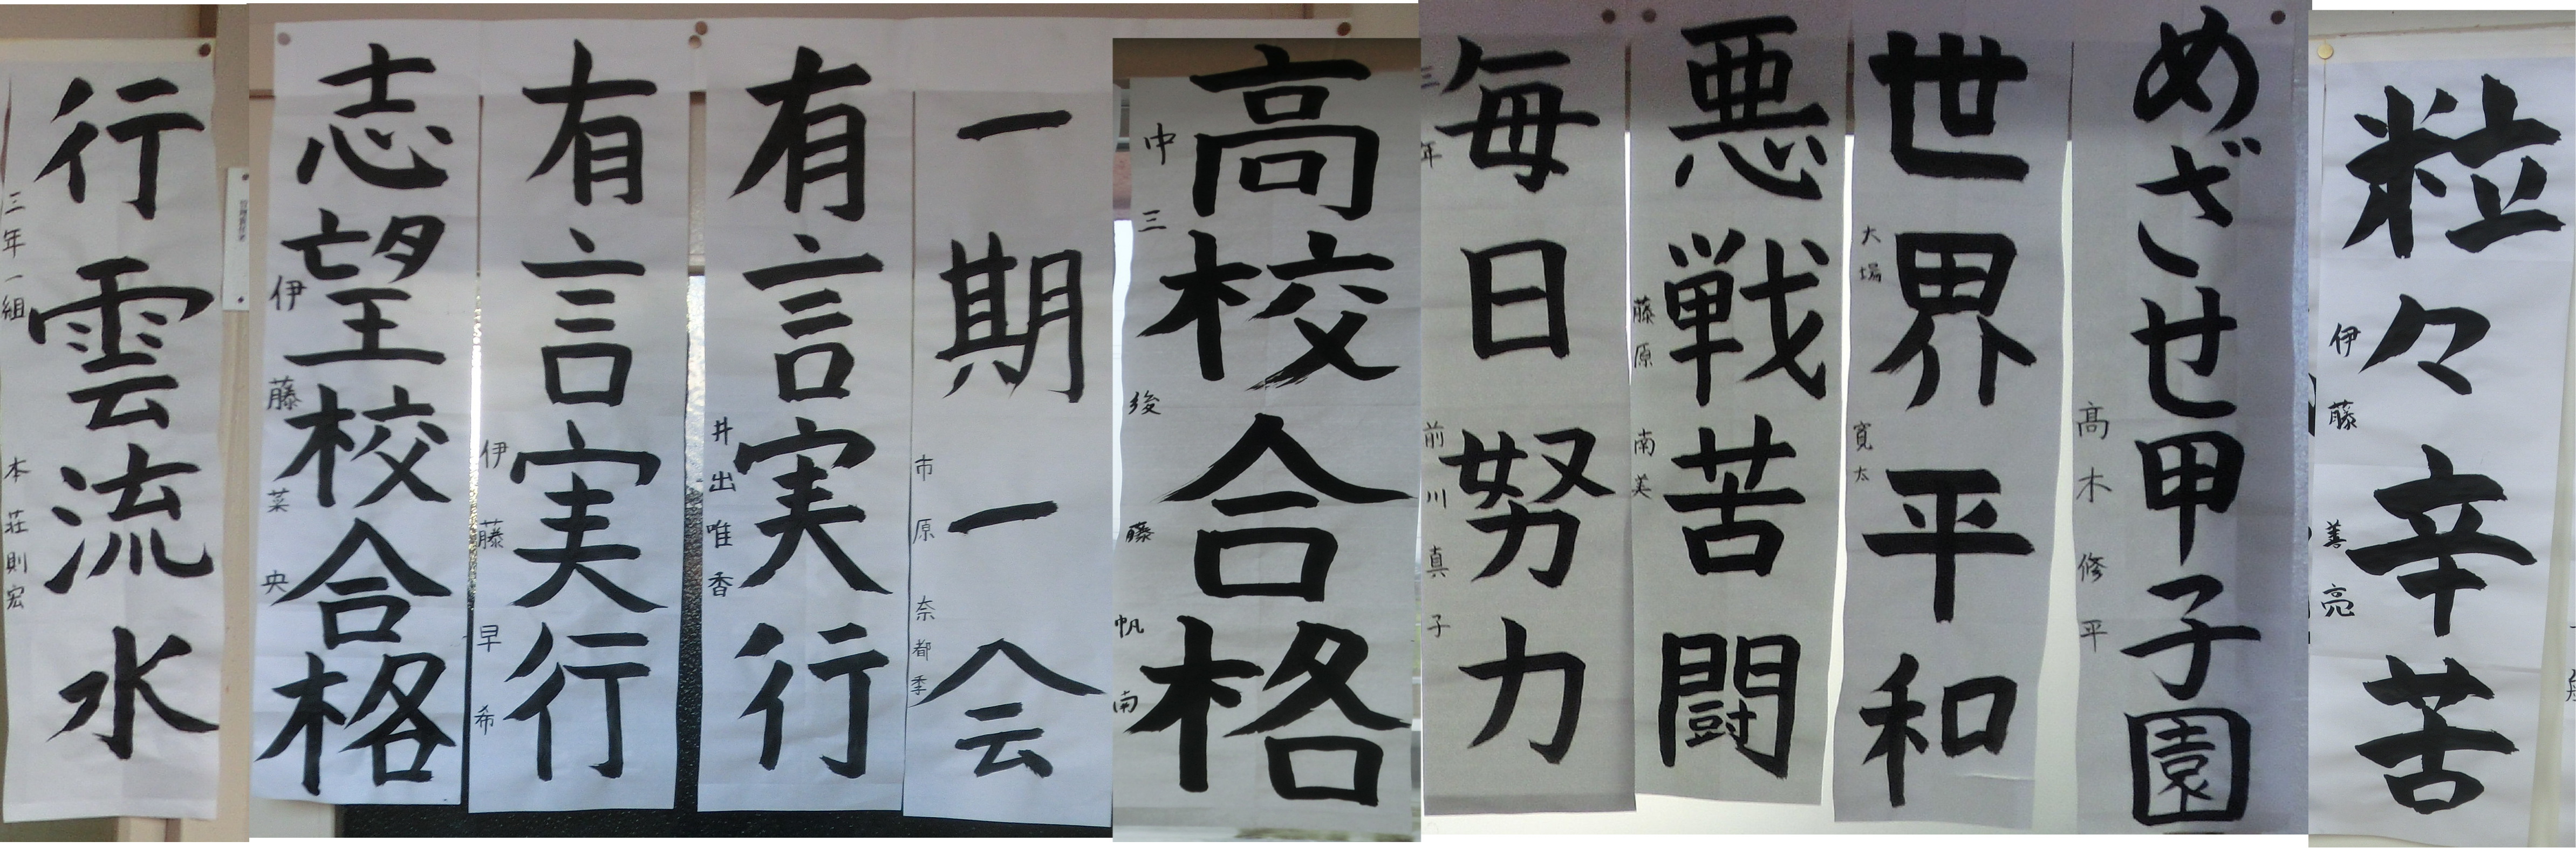 粒々辛苦
伊藤善亮
めざせ甲子園
髙木修平
世界平和
大場寛太
悪戦苦闘
藤原南美
毎日努力
三年
前川真子
高校合格
中三
後藤帆南
一期一会
市原奈都季
有言実行
井出唯香
有言実行
伊藤早希
志望校合格
伊藤菜央
行雲流水
三年一組
本荘則宏